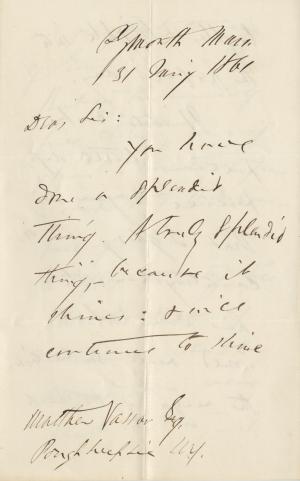 Plymouth Mass
31 May 1861
Dear Sir:
You have
done a splendid
thing. A truly splendid
thing, because it
shines: & will
continue to shine
Matthew Vassar Esq.
Poughkeepsie N.Y.